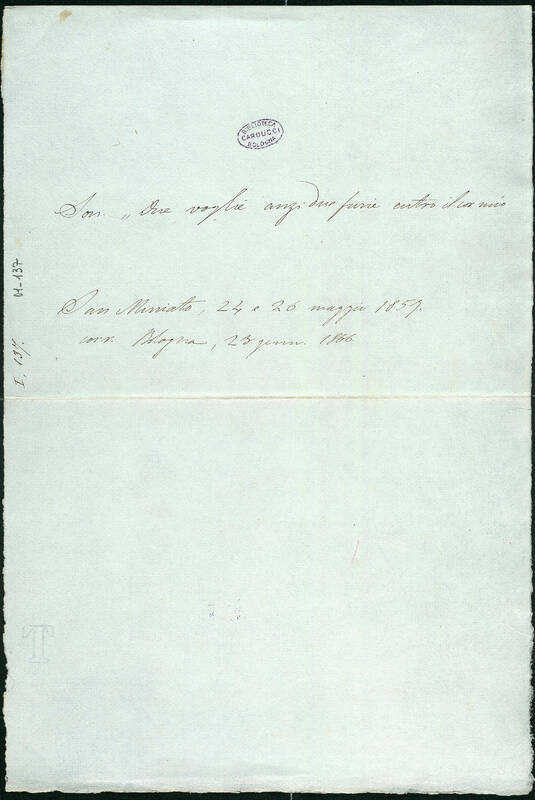 BIBLIOTECA
CARDUCCI
BOLOGNA
Son. „ Due voglie anzi due furie entro il cor mio
San Miniato, 24 e 26 maggio 1857.
corr. Bologna, 23 genn. 1866
I, 137.
VI-137
T